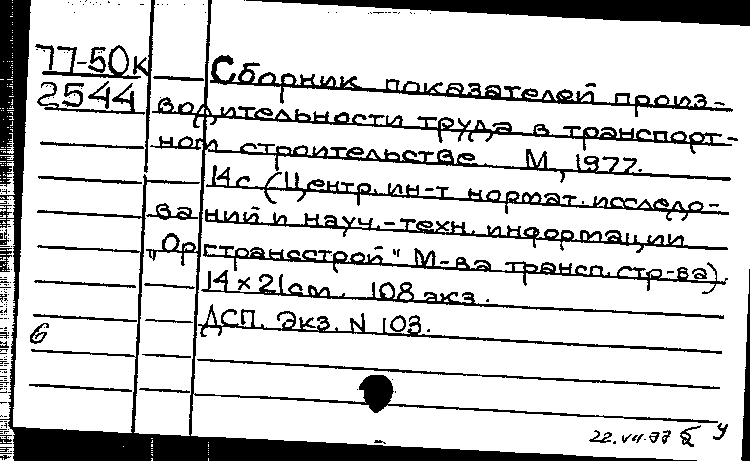 77-50к
2544
Сборник показателей произ-
водительности труда в транспорт-
ном строительстве. М., 1977.
14 с (Центр. ин-т нормат. исследо-
ваний и науч.-техн. информации
"Оргтрансстрой" М-ва трансп. стр-ва).
14×21 cm. 108 экз.
ДСП. Экз. N 103.
б
22.VII.77
у